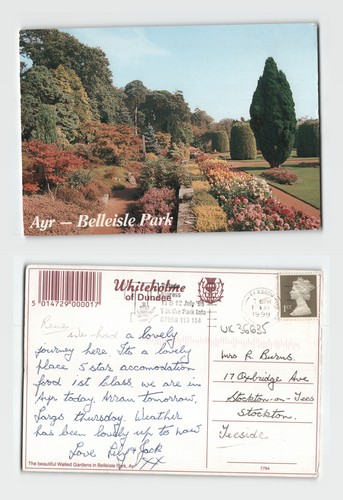 Ayr — Belleisle Park
Ayr — Belleisle Park
5 014729 000017
Whiteholme
of Dundee
12 July '98
Park Info
1998
1st
UK 36635
a lovely
journey here Its a lovely
place 5 stars accomodation
food 1st Class, we are in
Ayr today, Arran tomorrow,
Largs thursday. Weather
has been lovely up to now
Love Lily & Jack
XX
Mrs R Burns.
17 Oxbridge Ave
Stockton-on-Tees
Stockton.
Teeside
The beautiful Walled Gardens in Belleisle Park, Ayr
1794